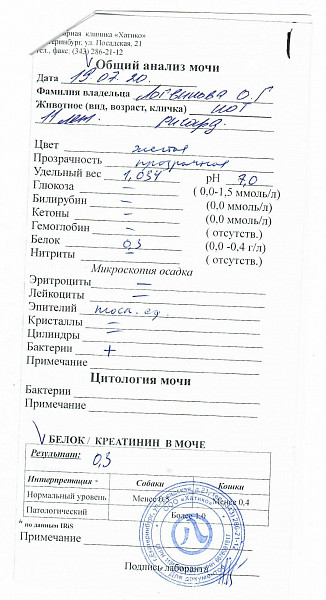 клиника «Хатико»
ул. Посадская, 21
тел., факс: (343) 286-21-12
Общий анализ мочи
Дата 19.07.20.
Фамилия владельца О. Г
Животное (вид, возраст, кличка) кот
11 лет. Рисард.
Цвет желтая
Прозрачность прозрачная
Удельный вес 1,034 pH 7,0
Глюкоза – ( 0,0-1,5 ммоль/л)
Билирубин – (0,0 ммоль/л)
Кетоны – (0,0 ммоль/л)
Гемоглобин – ( отсутств.)
Белок 0,3 (0,0 -0,4 г/л)
Нитриты – ( отсутств.)
Микроскопия осадка
Эритроциты –
Лейкоциты –
Эпителий плоск. ед.
Кристаллы –
Цилиндры –
Бактерии +
Примечание
Цитология мочи
Бактерии
Примечание
БЕЛОК / КРЕАТИНИН В МОЧЕ
Результат:
0,3
Интерпретация * Собаки Кошки
Нормальный уровень Менее 0.5 Менее 0.4
Патологический Более 1.0
* по данным IRIS
Примечание
Подпись лаборанта